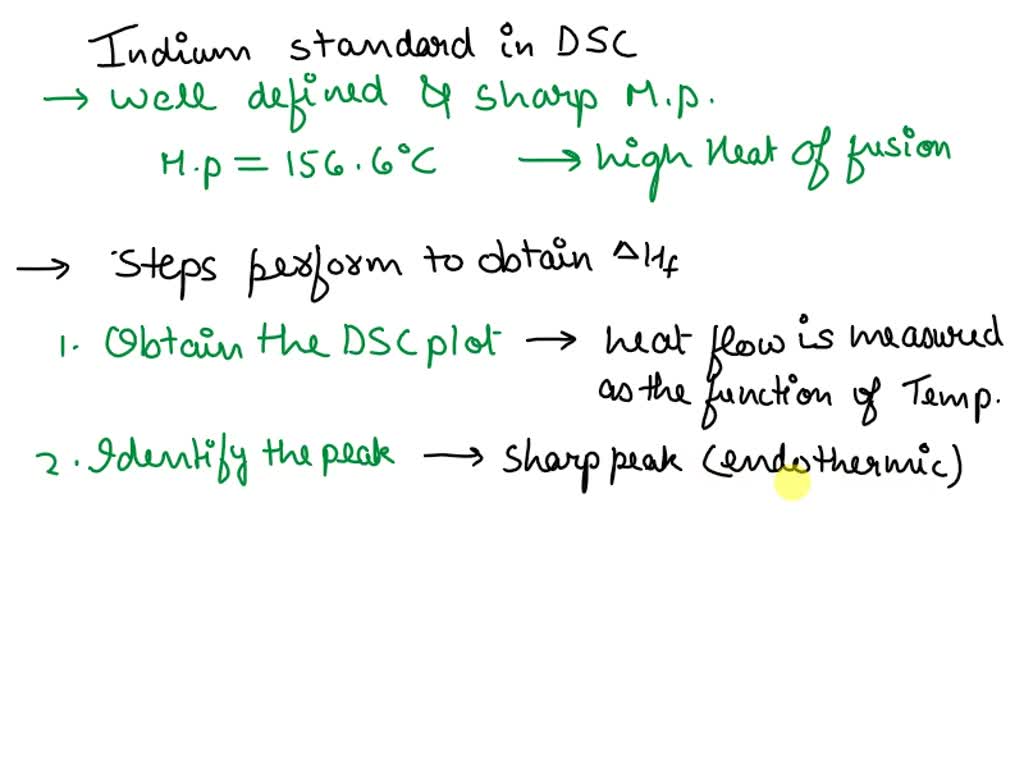 Indium standard in DSC
→ well defined & sharp M.p.
M.p = 156.6°C → high Heat of fusion
→ Steps perform to obtain ΔHf
1. Obtain the DSC plot → heat flow is measured
as the function of Temp.
2. Identify the peak → sharp peak (endothermic)